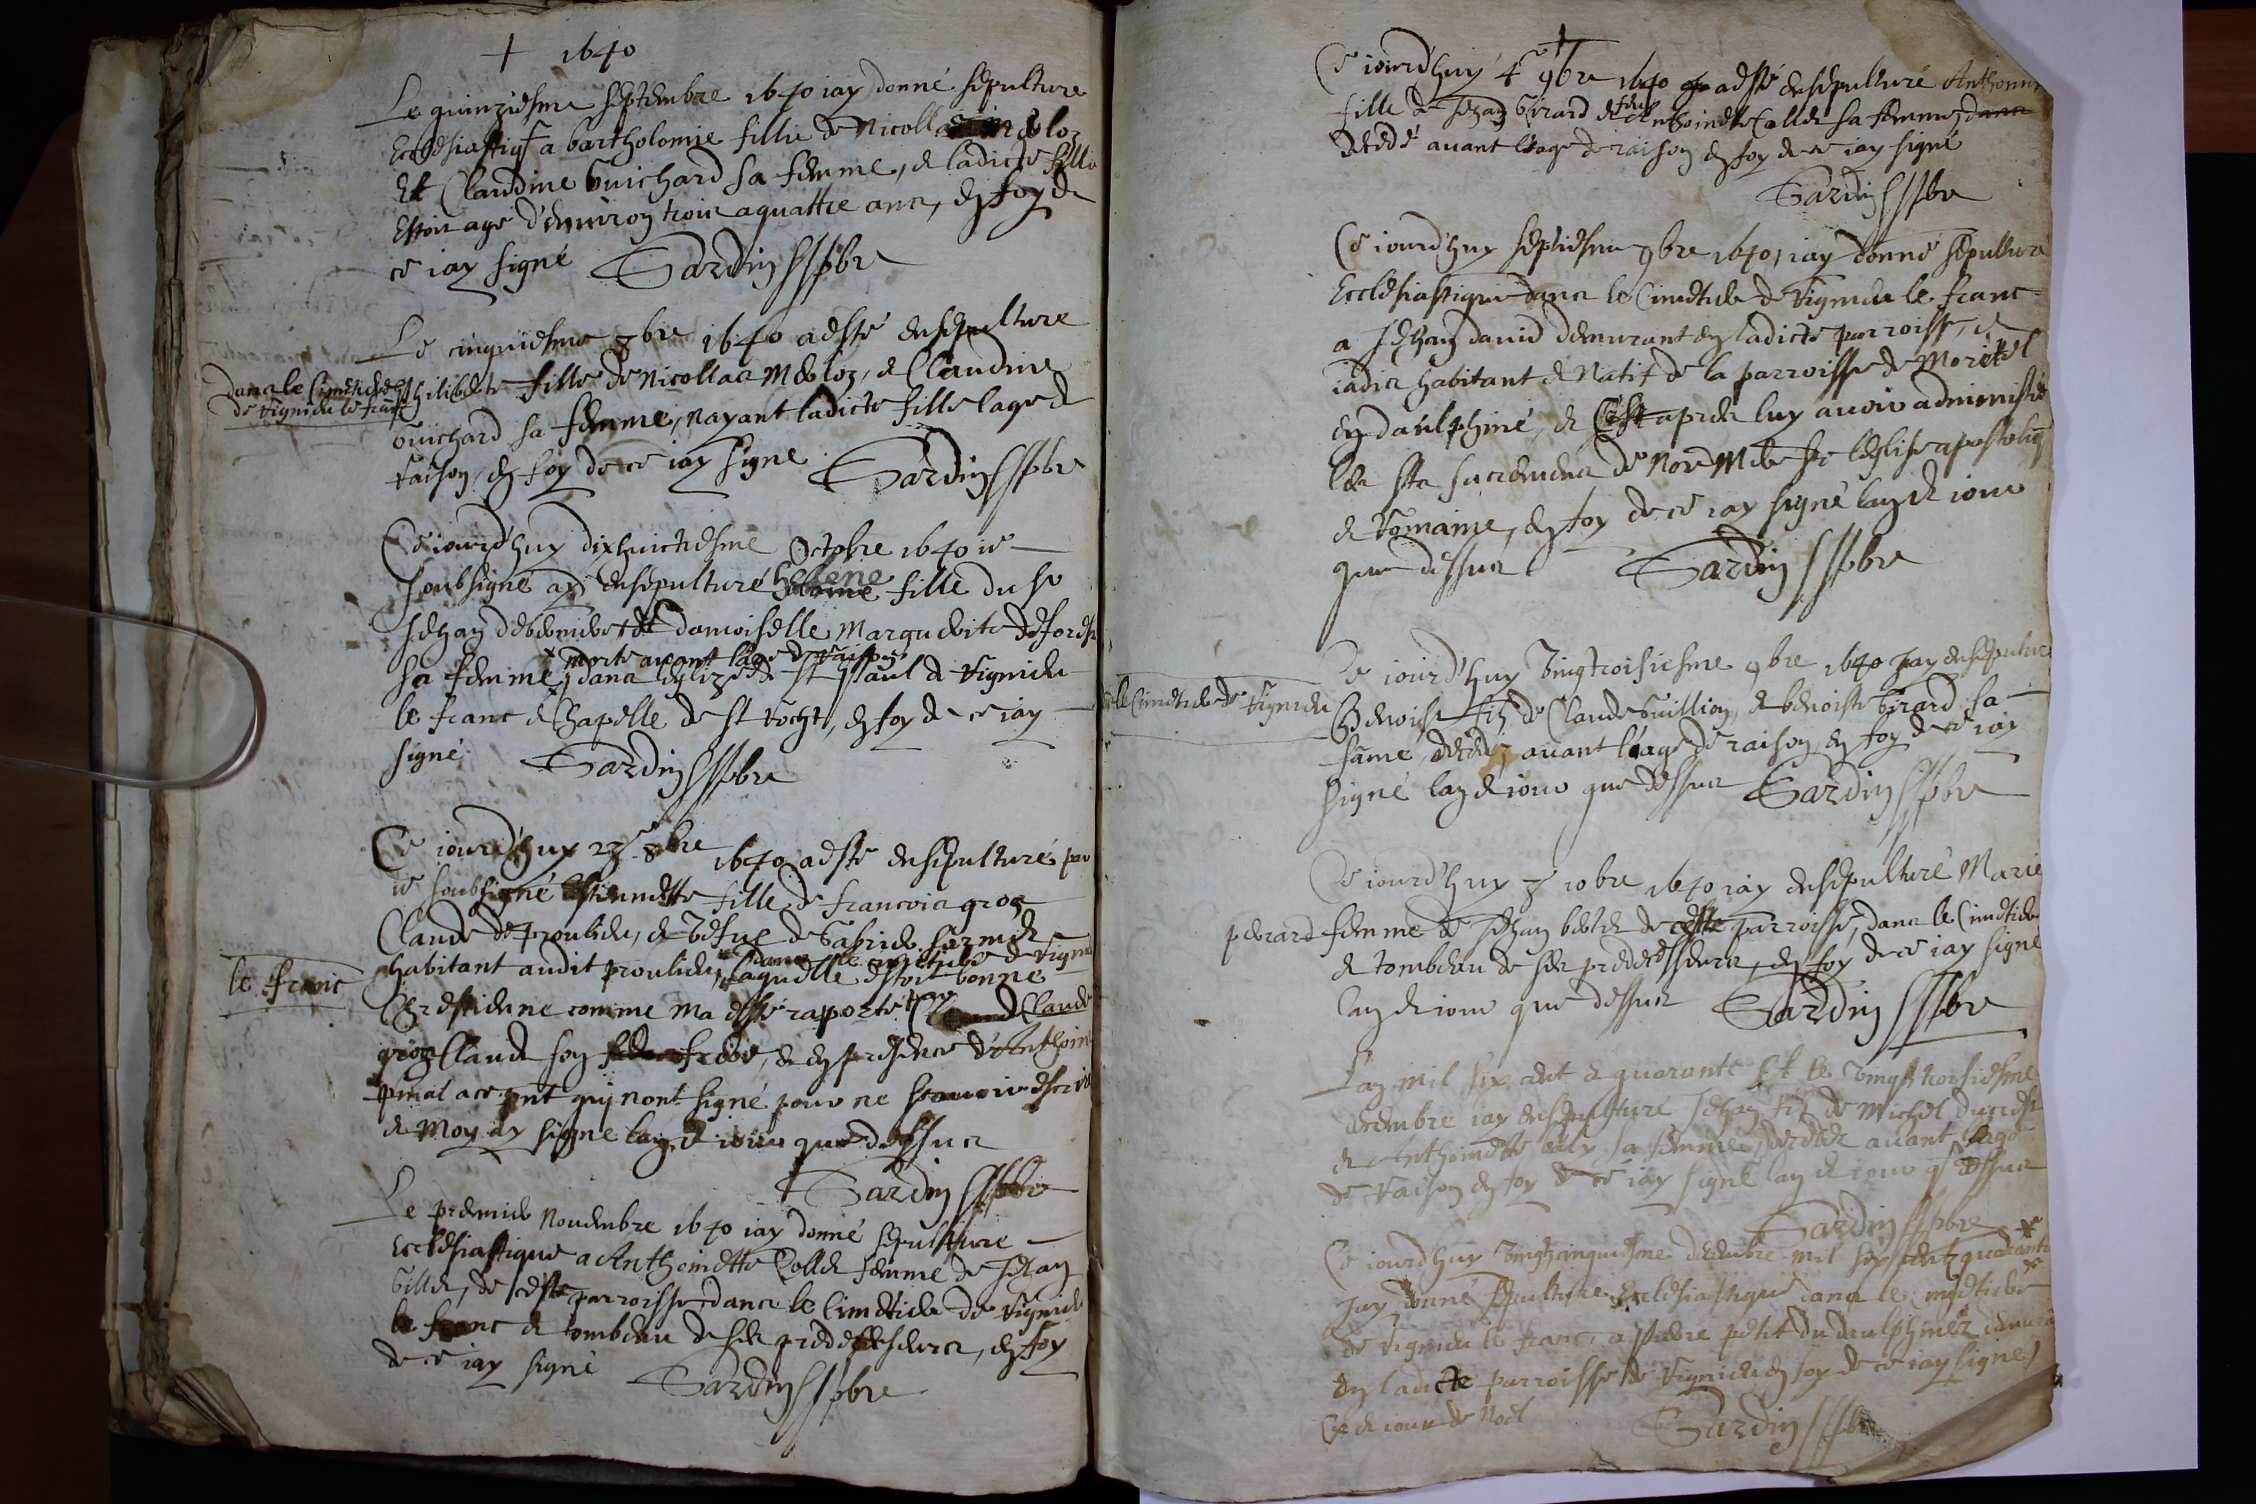 + 1640
Le quinziesme septembre 1640 iay donné sepulture
Ecclesiastiq a bartholomie fillie de Nicollas Meloz
Et Claudine Guichard sa femme, et ladicte fillie
Estoit agé d'environ trois a quattre ans, en foy de
ce iay signé Sardin pbre
Le cinquiesme 7bre 1640 a esté ensepulture
dans le Cimetiere
de Vignieu le franc
Philiberte fille de Nicollas Meloz, et Claudine
Guichard sa femme, nayant ladicte fille lage de
raison, en foy de ce iay signe Sardin pbre
Ce iourd'huy dixhuictiesme Octobre 1640 ie
soubsigné ay ensepulturé helene fille du sr
Jehan et damoiselle Marguerite
+ morte avant lage de raison
sa femme, dans leglize de St Paul de Vignieu
le franc et Chapelle de st rocht, en foy de ce iay
signé Sardin pbre
Ce iourd'huy 27e 8bre 1640 a esté ensepulturé par
ie soubsigné Estiennette fille de francois gros
Claude de proulieu, et vefue de Gabriel
dans le cimetiere de Vignieu
le franc
habitant audit proulieu, laquelle estoit bonne
Chrestienne comme ma esté raporté par Claude
gros Claude son frere, et en presence d'Anthoine
pinat a ce pnt quj nont signé pour ne scauoir escrire
et moy ay signe lan et iour que dessus
Sardin pbre
Le premier Nouembre 1640 iay donné sepulture
Ecclesiastique a Anthoinette Collet femme de Jehan
de ceste parroisse dans le Cimetiere de Vignieu
le franc et tombeau de ses predecesseurs, en foy
de ce iay signé Sardin pbre
Ce iourd'huy 4e 9bre 1640 a esté ensepulturé Anthonne
fille de Jehan Girard et feu Anthoinette Collet sa femme, dans
decedé auant leage de raison en foy de ce iay signé
Sardin pbre
Ce iourd'huy septiesme 9bre 1640, iay donné sepulture
Ecclesiastique dans le Cimetiere de Vignieu le franc
a Jehan dauid demurant en ladicte parroisse, et
iadis habitant et Natif de la parroisse de Morestel
en daulphiné, et Cest apres luy auoir administré
les sts sacremens de Nore Mere ste leglise apostoliq
et romaine, en foy de ce iay signé lan et iour
que dessus Sardin pbre
Ce iourd'huy Vingtroisiesme 9bre 1640 Jay ensepulture
le Cimetiere de Vignieu
Benoist filz de Claude Guillion, et benoiste Girard sa
fame, decedez auant l'eage de raison en foy de ce iay
signé lan et iour que dessus Sardin pbre
Ce iourd'huy 7e 10bre 1640 iay ensepulturé Marie
perrard femme de Jehan de ceste parroisse, dans le Cimetiere
et tombeau de ses predecesseurs, en foy de ce iay signé
lan et iour que dessus Sardin pbre
Lan mil six cent et quarante Et le vingt troisiesme
decembre iay ensepulturé Jehan filz de Michel
et Anthoinette sa femme, decedez auant lage
de raison en foy de ce iay signé lan et iour q dessus
Sardin pbre
Ce iourd'huy Vingtcinquiesme decembre mil six centz quarante
Jay donné sepulture Ecclesiastique dans le cimetiere
de Vignieu le franc, a pierre petit du daulphinez
en ladicte parroisse de Vignieu en foy de ce iay signe
Ce et iour de Noel Sardin pbre